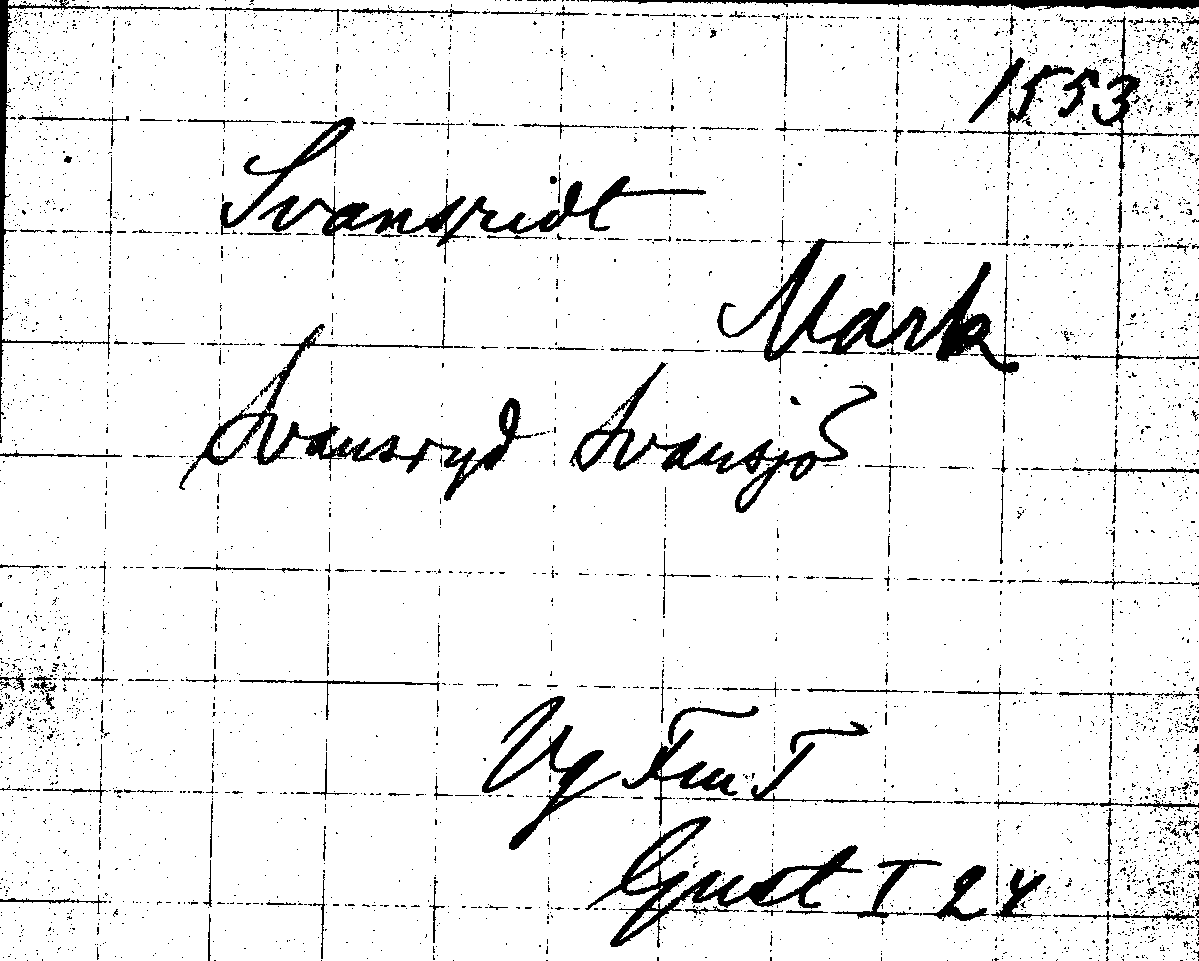 1553
Svansridt
Mark
Svansryd Svansjö
Vg Fm T
Gust I 24